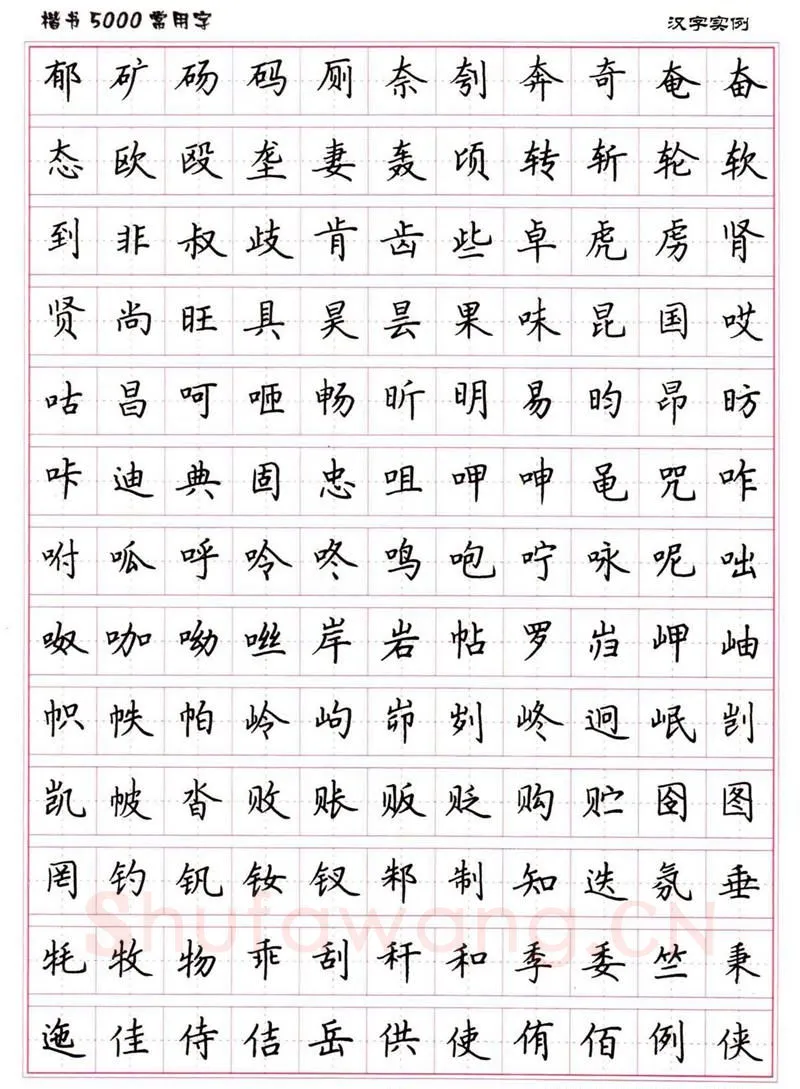 楷书5000常用字 汉字实例
郁 矿 砀 码 厕 奈 刳 奔 奇 奄 奋
态 欧 殴 垄 妻 轰 顷 转 斩 轮 软
到 非 叔 歧 肯 齿 些 卓 虎 虏 肾
贤 尚 旺 具 昊 昙 果 味 昆 国 哎
咕 昌 呵 咂 畅 昕 明 易 昀 昂 昉
咔 迪 典 固 忠 咀 呷 呻 黾 咒 咋
咐 呱 呼 呤 咚 鸣 咆 咛 咏 呢 咄
呶 咖 呦 咝 岸 岩 帖 罗 岿 岬 岫
帜 帙 帕 岭 岣 峁 刿 峂 迥 岷 剀
凯 帔 沓 败 账 贩 贬 购 贮 囹 图
罔 钓 钒 钕 钗 邾 制 知 迭 氛 垂
牦 牧 物 乖 刮 秆 和 季 委 竺 秉
迤 佳 侍 佶 岳 供 使 侑 佰 例 侠
Shufawang.CN